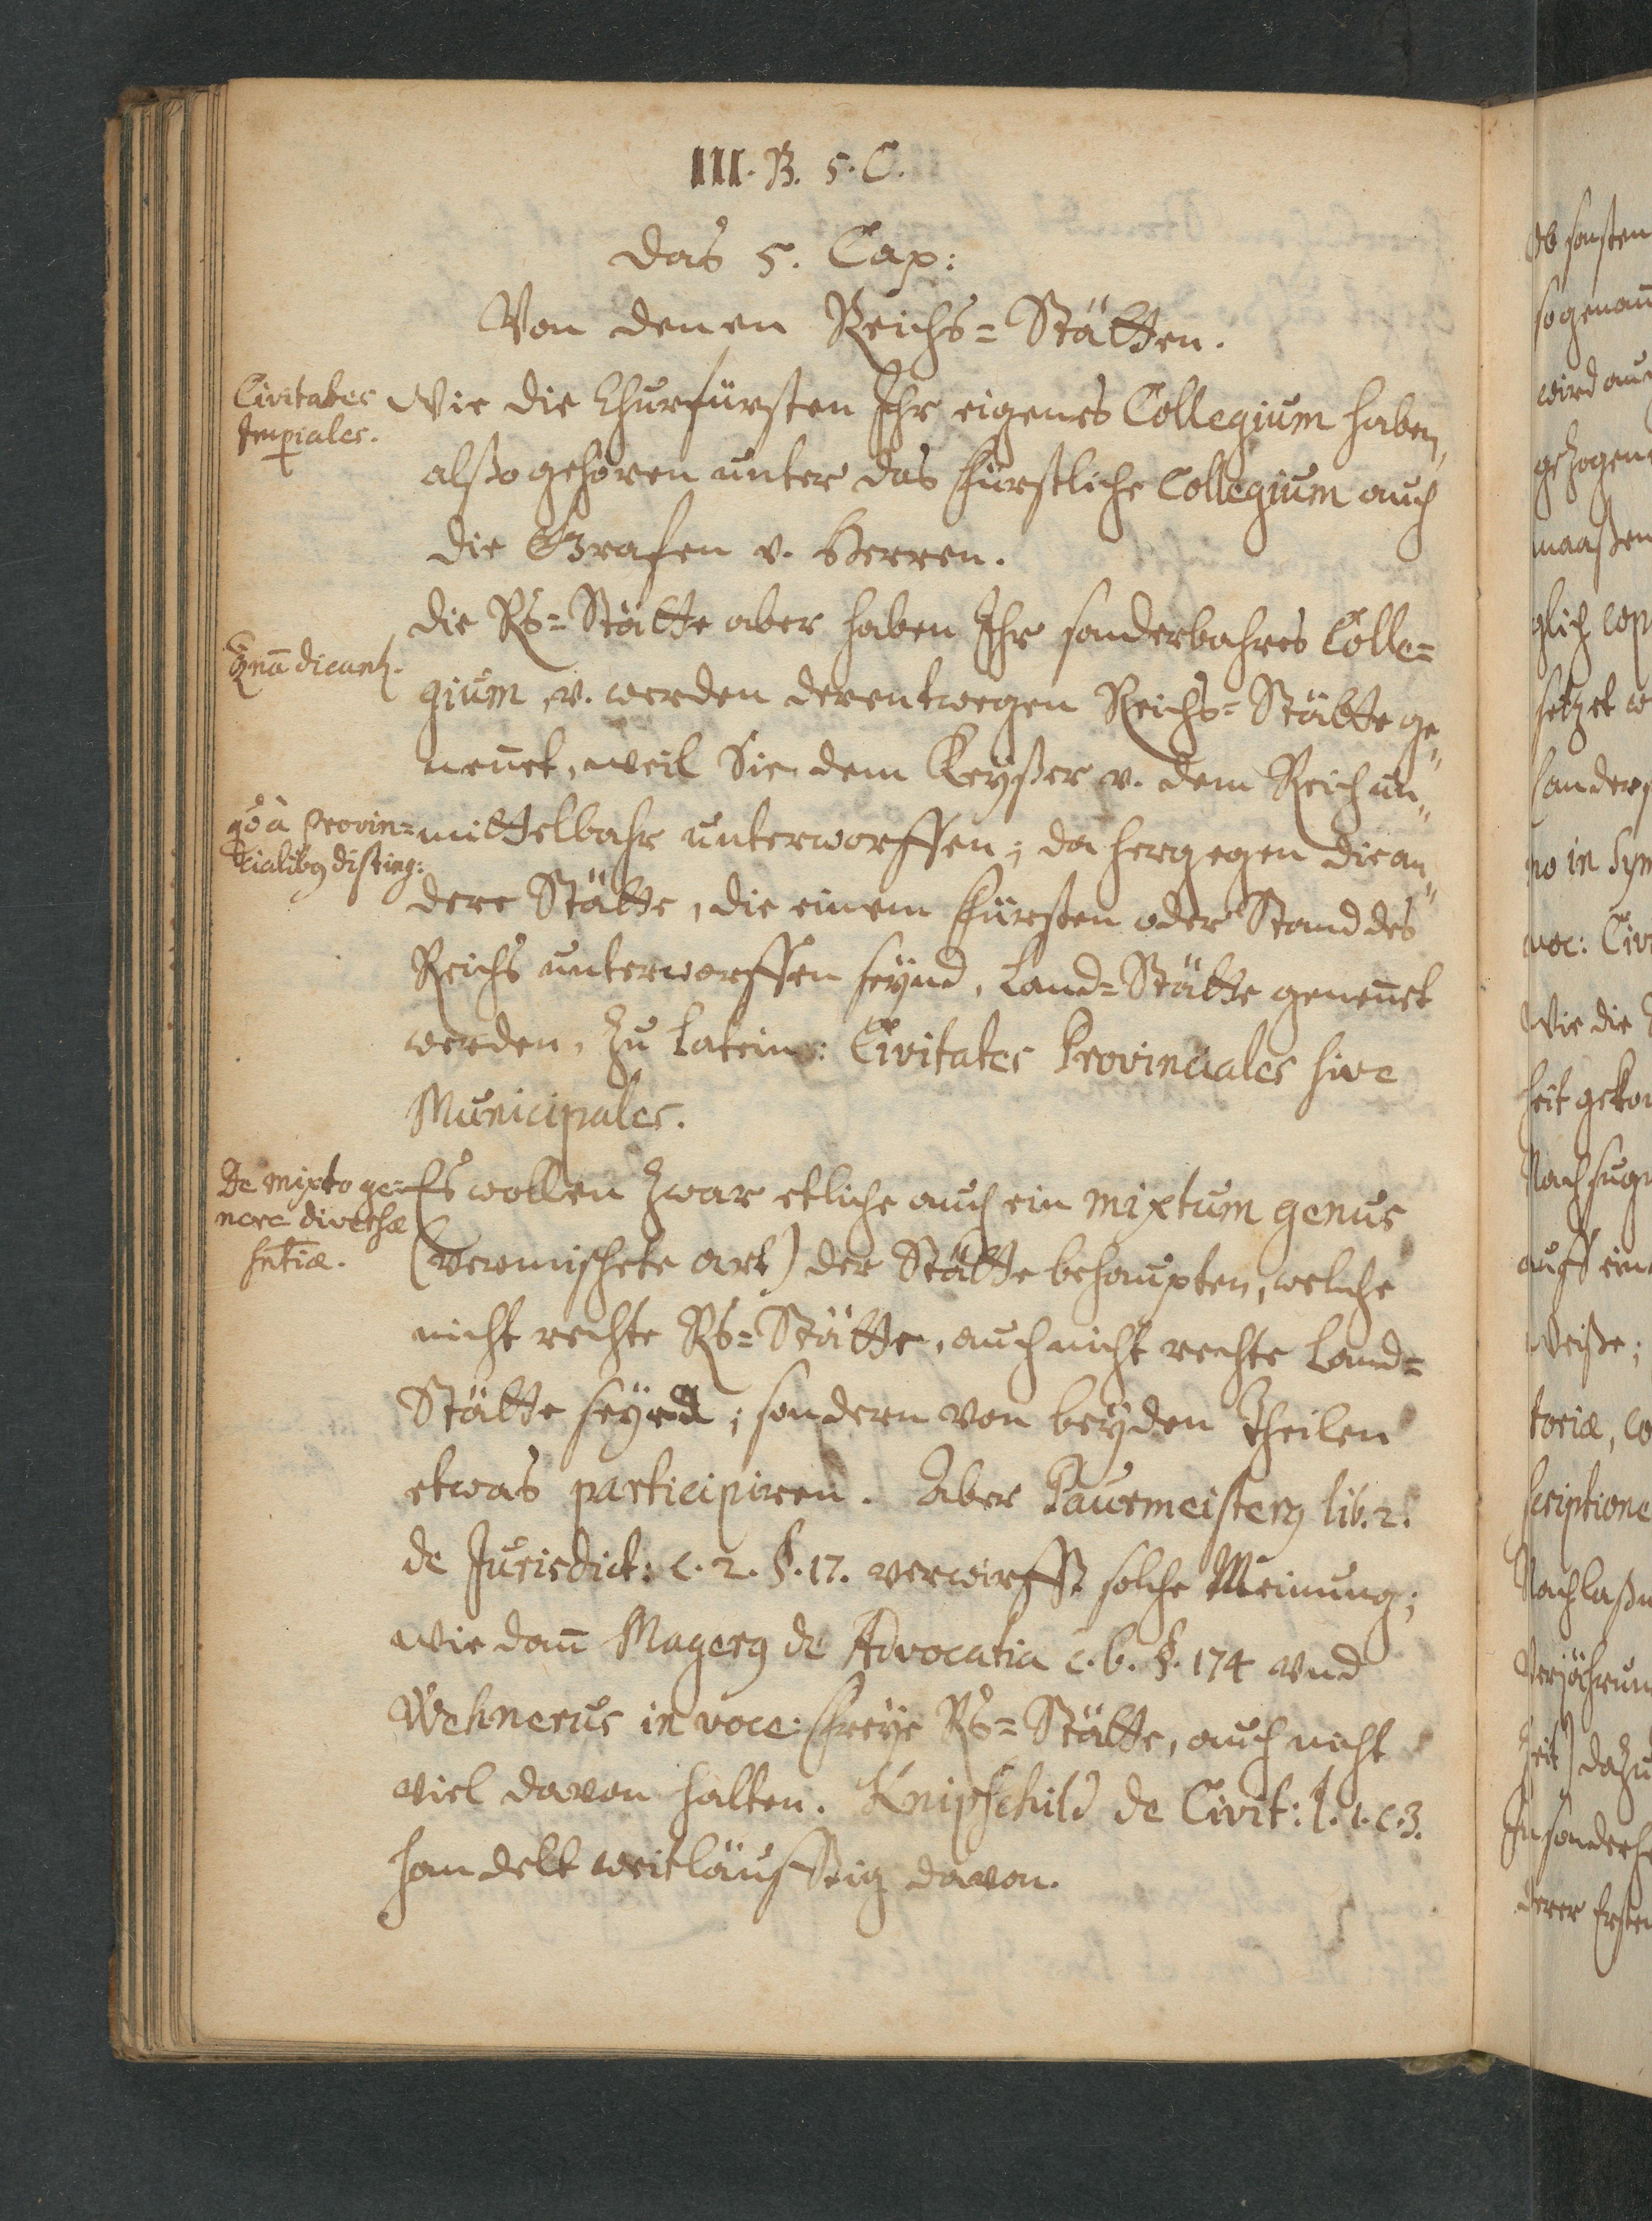 III. B. 5. C.
Das 5. Cap:
Von denen Reichs=Stätten.
Civitates
Imp̱iales.
Wie die Churfürsten Ihr eigenes Collegium haben,
alßo gehören unter das fürstliche Collegium auch
die Grafen v. Herren.
Die Rs=Stätte aber haben Ihr sonderbahres Colle=
dicant̃.
gium, v. werden derentwegen Reichs=Stätte ge„
nen̄et, weil Sie dem Keyßer v. dem Reich un„
qõ à Provin=
cialibꝯ disting:
mittelbahr unterworffen; da hergegen die an„
dere Stätte, die einem Fürsten oder Stand des
Reichs unterworffen seynd, Land=Stätte genen̄et
werden, zu Latein: Civitates Provinciales sive
Municipales.
De mixto ge=
nere diversæ
sn̄tiæ.
Es wollen zwar etliche auch ein mixtum genus
(vermischete art) der Stätte behaupten, welche
nicht rechte Rs=Stätte, auch nicht rechte Land=
Stätte seynd; sondern von beyden Theilen
etwas participiren. Aber Paurmeisterꝯ lib. 2.
de Jurisdict: c. 2. §. 17. verwirfft solche Meinung;
wie dan̄ Magerꝯ de Advocatia c. 6. §. 174 und
Wehnerus in voce: Freye Rs=Stätte, auch nicht
viel davon halten. Knipschild de Civit: l. 1. c. 3.
handelt weitläuffig davon.
Ob sonsten
so genan̄
wird auc
gezogen
maaßen
glich
setzet w
sonders
no in Syn
voc: Civi
Wie die
heit geko
auff ein
Weiße;
toriæ, co
scriptione
Nachlaßu
Verjährun
Zeit) dazu
In sonderhe
derer Ersten